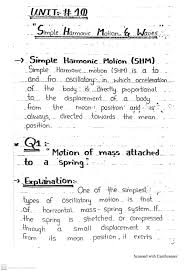 UNIT: # 10
"Simple Harmonic Motion & Waves"
→ Simple Harmonic Motion (SHM)
Simple Harmonic motion (SHM) is a to
and fro oscillatory in which acceleration
of the body is directly proportional
to the displacement of a body
from the mean position and is
always, directed towards the mean
position.
Q1:
"Motion of mass attached
to a spring"
→ Explanation:-
One of the simplest
types of oscillatory motion is that
of horizontal mass-spring system. If
the spring is stretched or compressed
through a small displacement x
from its mean position, it exerts
Scanned with CamScanner